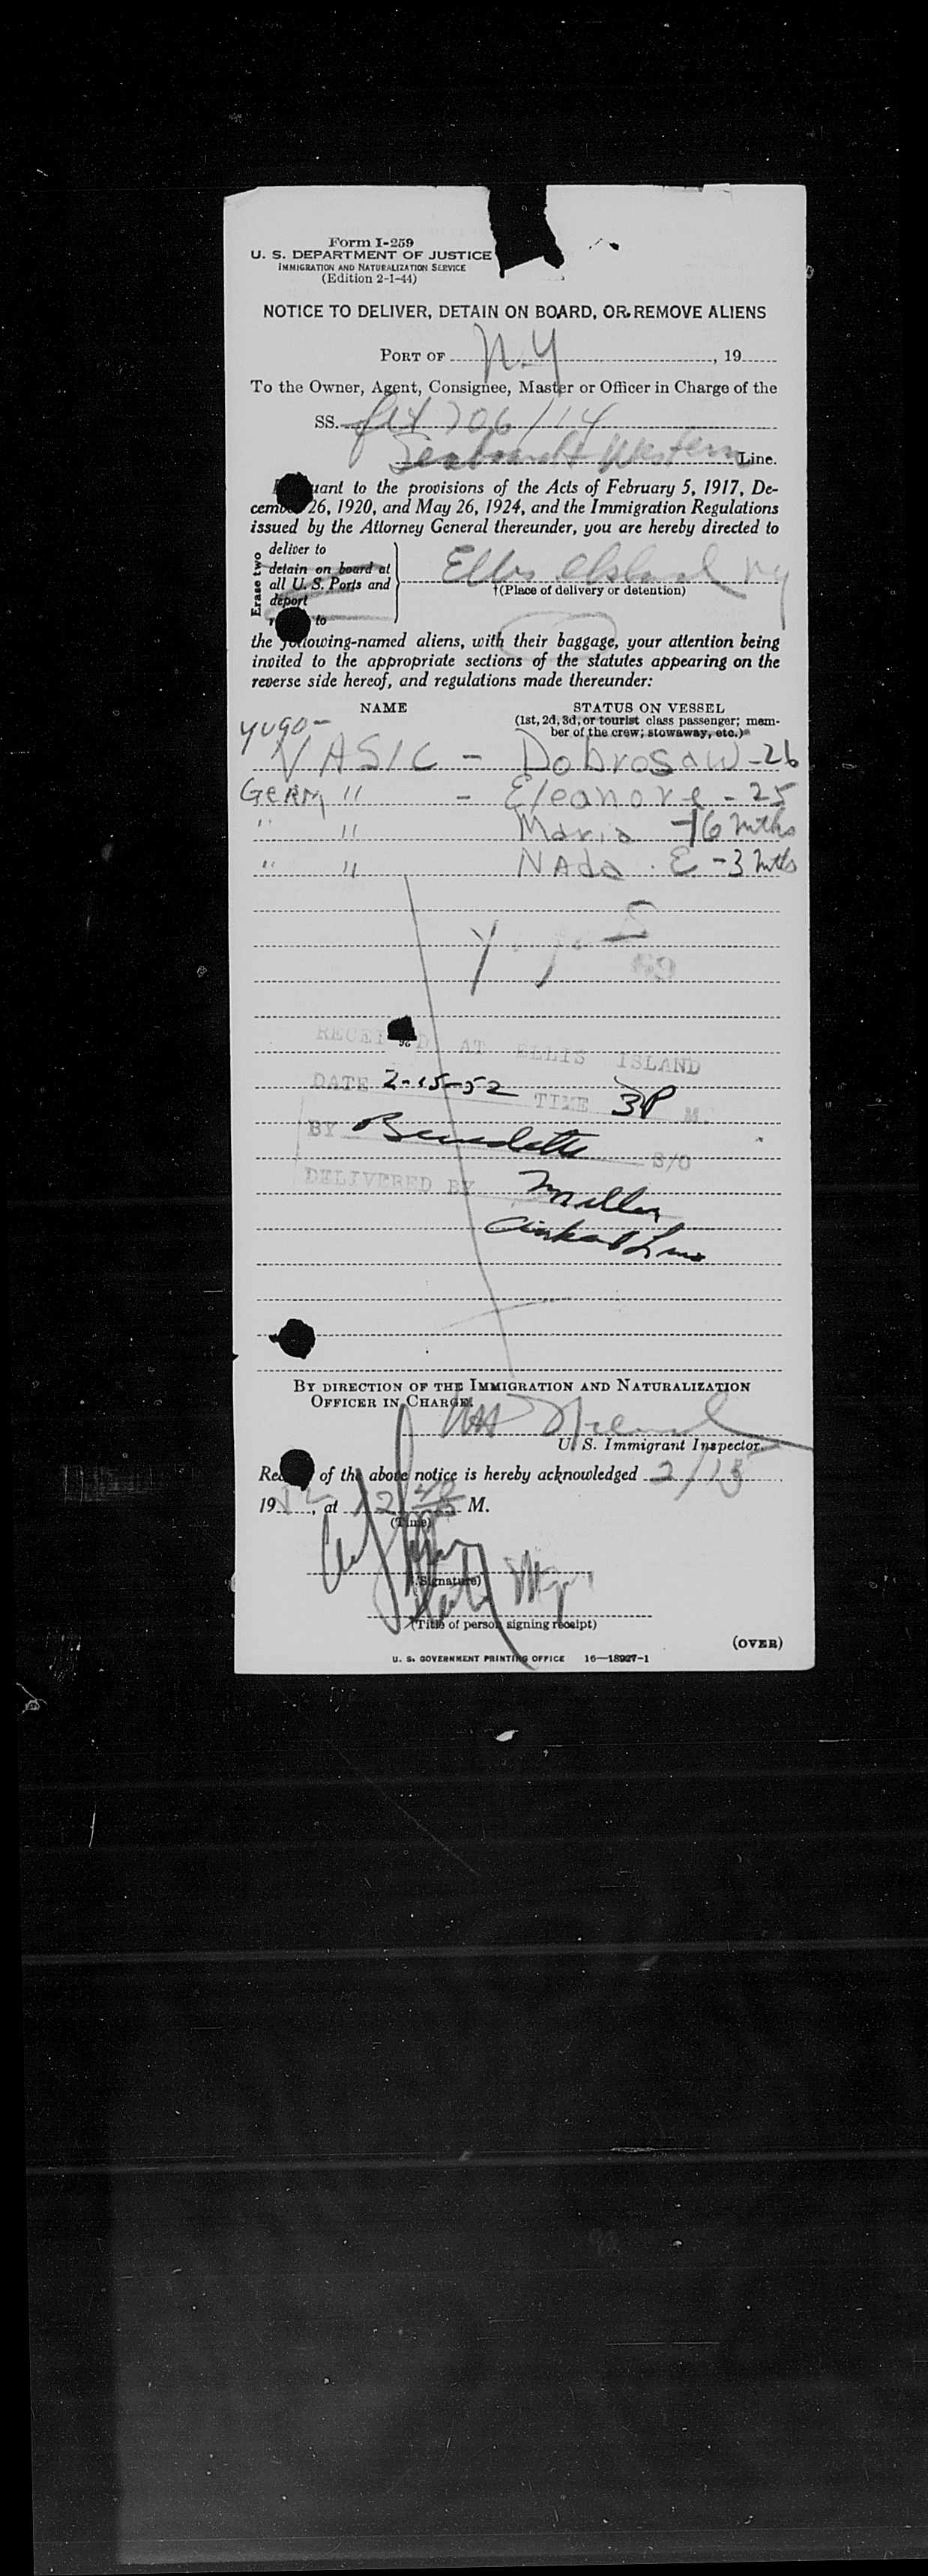 Form I-259
U. S. DEPARTMENT OF JUSTICE
IMMIGRATION AND NATURALIZATION SERVICE
(Edition 2-1-44)
NOTICE TO DELIVER, DETAIN ON BOARD, OR REMOVE ALIENS
PORT OF N.Y , 19
To the Owner, Agent, Consignee, Master or Officer in Charge of the
SS. flt 706/14
Seaboard & Western Line.
uant to the provisions of the Acts of February 5, 1917, De-
cember 26, 1920, and May 26, 1924, and the Immigration Regulations
issued by the Attorney General thereunder, you are hereby directed to
Erase two
deliver to
detain on board at
all U. S. Ports and
deport
to
Ellis Island NY
†(Place of delivery or detention)
the following-named aliens, with their baggage, your attention being
invited to the appropriate sections of the statutes appearing on the
reverse side hereof, and regulations made thereunder:
NAME STATUS ON VESSEL
(1st, 2d, 3d, or tourist class passenger; mem-
ber of the crew; stowaway, etc.)
YUGO-
VASIC - Dobrosaw - 26
GERM " - Eleanore - 25
" " Maria - 16 mths
" " NAda . E - 3 mths
RECEIVED AT ELLIS ISLAND
DATE 2-15-52 TIME 3P M.
BY Benedetto S/O
DELIVERED BY Miller
BY DIRECTION OF THE IMMIGRATION AND NATURALIZATION
OFFICER IN CHARGE.
U. S. Immigrant Inspector.
Re of the above notice is hereby acknowledged 2/15
1952, at 12 M.
(Time)
(Signature)
(Title of person signing receipt)
(OVER)
U. S. GOVERNMENT PRINTING OFFICE 16—18927-1